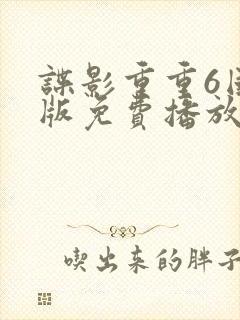 諜影重重6
版免費播放
喫出来的胖子